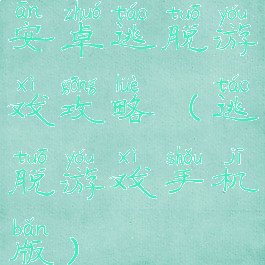 ān zhuó táo tuō yóu
安卓逃脱游
xì gōng lüè táo
戏攻略（逃
tuō yóu xì shǒu jī
脱游戏手机
bǎn
版）